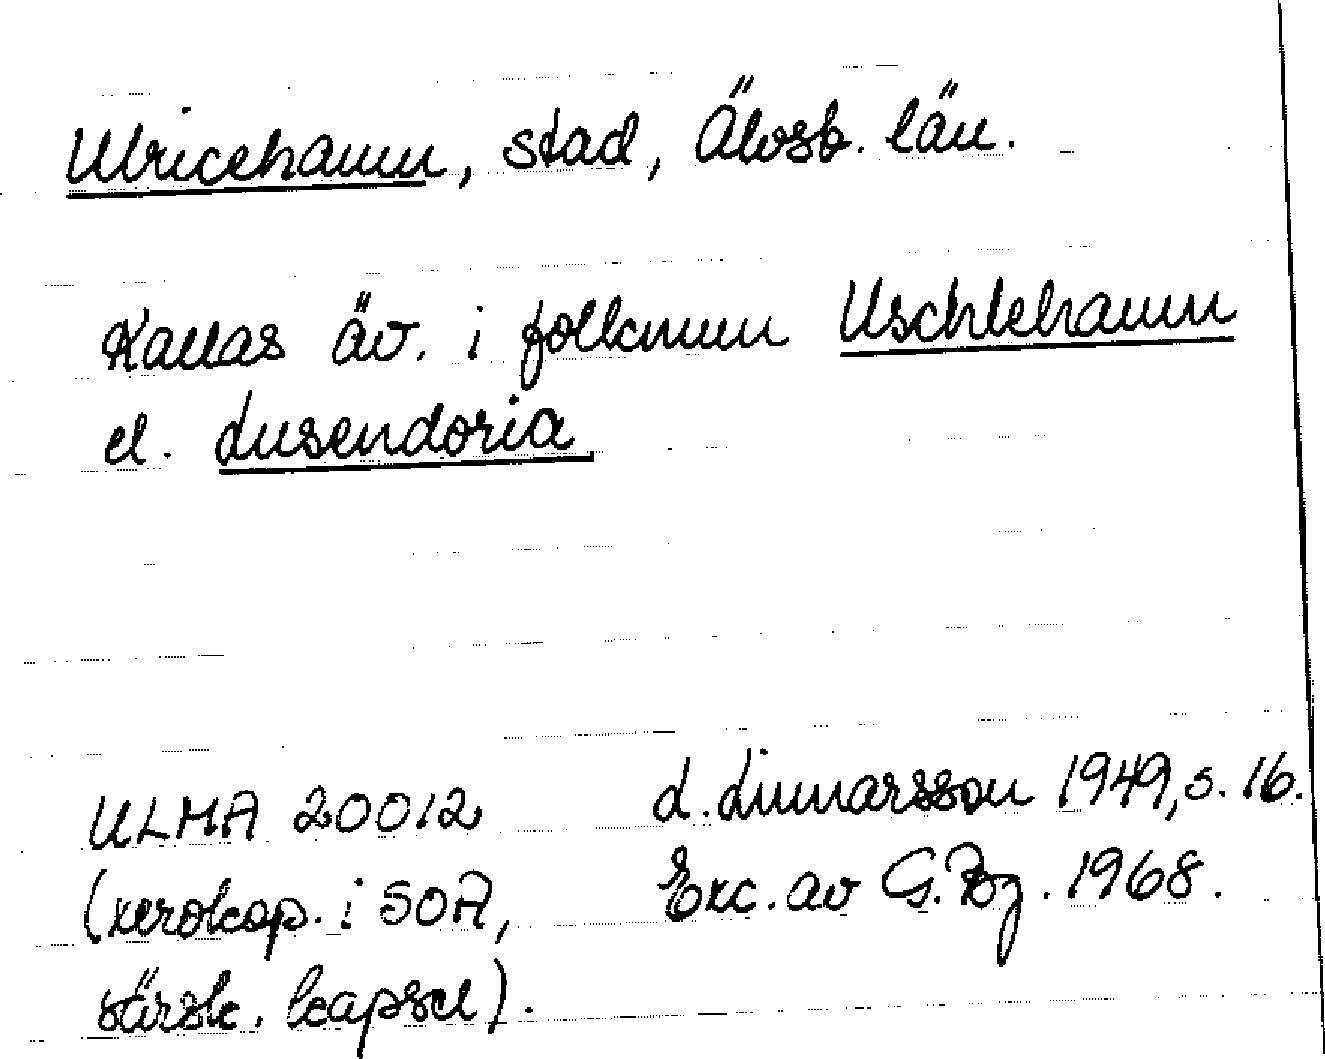 Ulricehamn, stad, Älvsb. län.
Kallas äv. i folkmun Uschlehamn
el. Lusendoria
ULMA 20012 L. Linnarsson 1949, s. 16.
(xerokop. i SOA, Exc. av G. Bg. 1968.
särsk. kapsel).